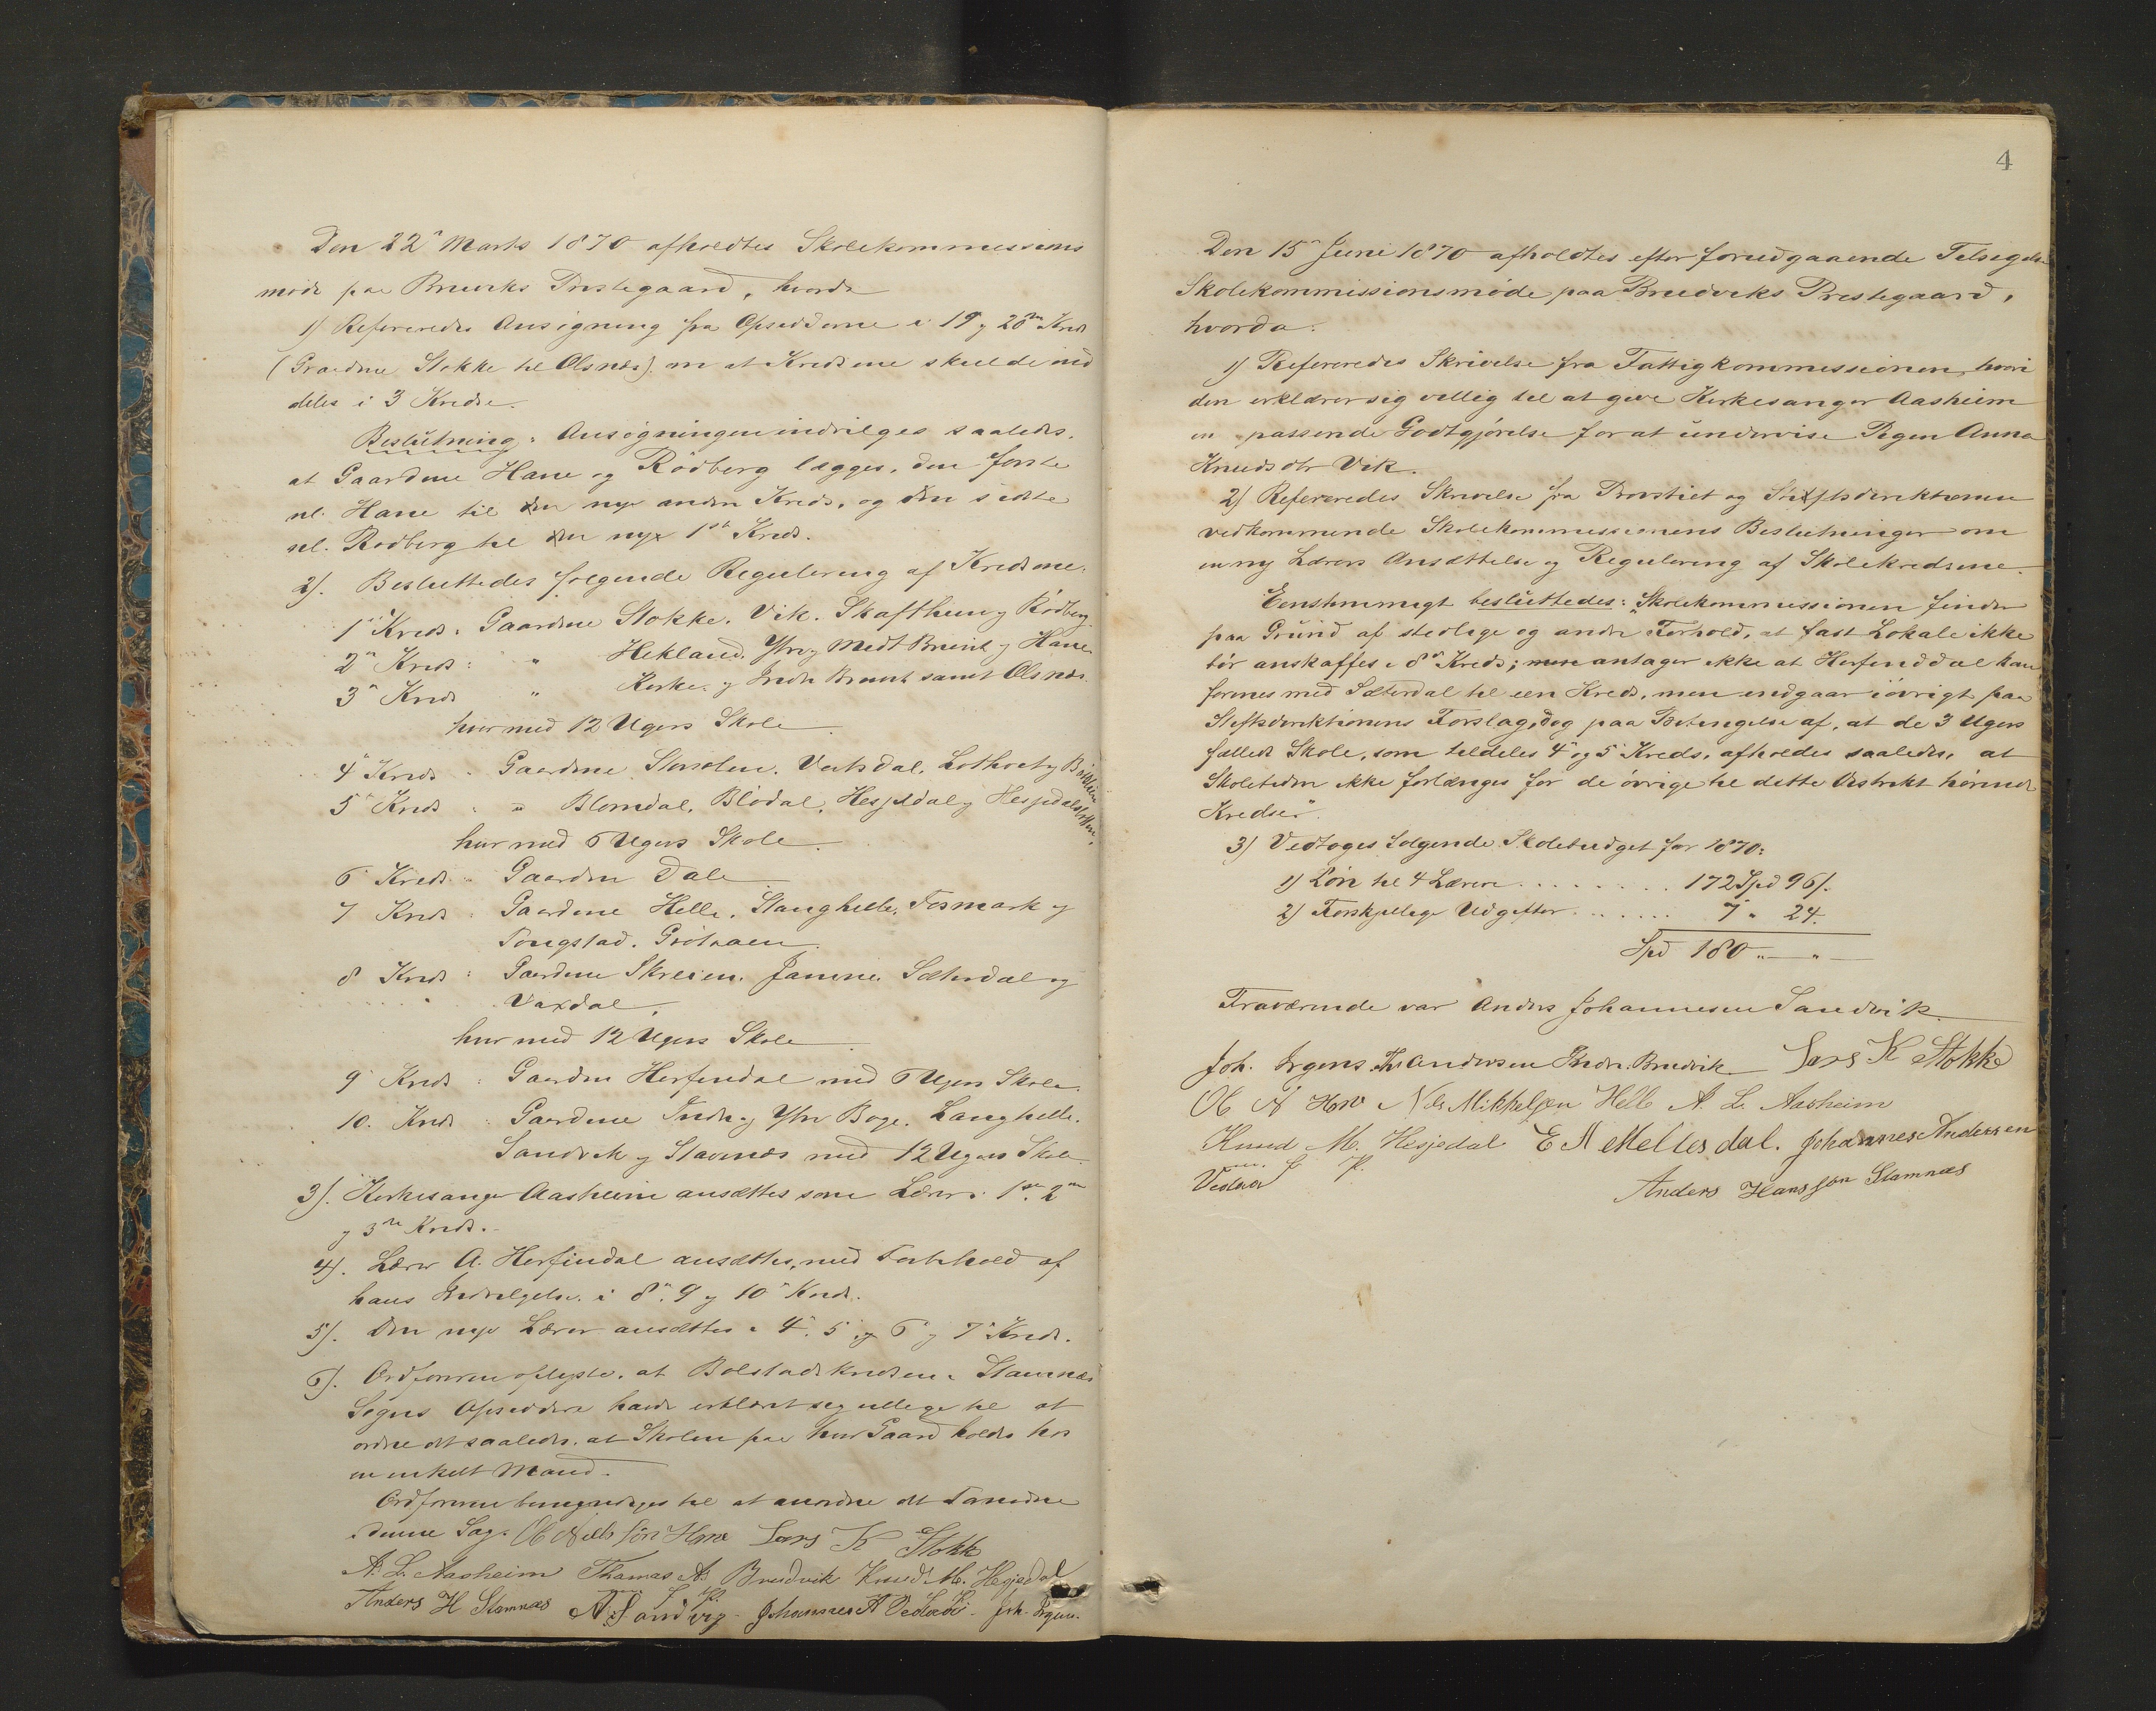 Den 22de Marts 1870 afholdtes Skolekommissions
møde paa Bruviks Prestegaard, hvorda
1) Refereredes Ansøgning fra Opsidderne i 19 og 20de Kreds
(Gaardene Stokke til Olsnæs) om at Kredsene skulde ind
deles i 3 Kredse.
Beslutning: Ansøgningen indvilges saaledes,
at Gaardene Hane og Rödberg lægges, den første
nl. Hane til den nye anden Kreds, og den sidste
nl. Rödberg til den nye 1ste Kreds.
2). Besluttedes følgende Regulering af Kredsene:
1ste Kreds: Gaardene Stokke. Vik. Skafthun og Rödberg.
2den Kreds: " Hekland. Ytre og Midt Bruvik og Hane
3die Kreds " Kirke- og Indre Bruvik samt Olsnæs.
hver med 12 Ugers Skole.
4de Kreds: Gaardene Veitsdal,
5te Kreds: " Blomdal, Blödal, Hesjedal og
hver med 6 Ugers Skole.
6 Kreds: Gaarden Dale
7 Kreds: Gaardene Helle. Stanghelle, Fosmark og
Tongstad.
8 Kreds: Gaardene Skreien. Jamne. Sæterdal og
Vaxdal,
hver med 12 Ugers Skole.
9 Kreds: Gaarden Herfindal med 6 Ugers Skole.
10. Kreds: Gaardene Indre og Ytre Boge. Langhelle.
Sandvik og Stamnæs med 12 Ugers Skole.
3). Kirkesanger Aasheim ansættes som Lærer i 1ste, 2den
og 3die Kreds.
4). Lærer A. Herfindal ansættes, med Forbehold af
hans Indvilgelse, i 8de, 9 og 10de Kreds.
5). Den nye Lærer ansættes i 4de, 5 og 6 og 7de Kreds.
6). Ordføreren oplyste, at Bolstadkredsen i Stamnæs
Sogns Opsiddere havde erklæret sig villige til at
ordne det saaledes, at Skolen paa hver Gaard holdes hos
en enkelt Mand.
Ordføreren bemyndiges til at anordne det Fornødne
i denne Sag. Ole Nielssön Hane Lars K Stokke
A. L. Aasheim Thomas A. Brudvik Knud M. Hesjedal
Anders H Stamnæs A. J. Sandvig. Johannes A Vedlaa. Joh. Irgens.
4
Den 15de Juni 1870 afholdtes efter forudgaaende Tilsigelse
Skolekommissionsmöde paa Brudviks Prestegaard,
hvorda:
1) Refereredes Skrivelse fra Fattigkommissionen, hvori
den erklærer sig villig til at give Kirkesanger Aasheim
en passende Godtgjörelse for at undervise Pigen Anna
Knudsdtr Vik.
2) Refereredes Skrivelse fra Provstiet og Stiftsdirektionen
vedkommende Skolekommissionens Beslutninger om
en ny Lærers Ansættelse og Regulering af Skolekredsene.
Eenstemmigt besluttedes: "Skolekommissionen finder
paa Grund af stedlige og andre Forhold, at fast Lokale ikke
bör anskaffes i 8de Kreds; antager ikke at Herfinddal kan
forenes med Sæterdal til een Kreds, men indgaar iövrigt paa
Stiftsdirektionens Forslag, dog paa Betingelse af, at de 3 Ugers
fælleds Skole, som tildeles 4de og 5 Kreds, afholdes saaledes, at
Skoletiden ikke forlænges for de övrige til dette Distrikt hörende
Kredser".
3) Vedtoges fölgende Skolebudget for 1870:
1) Lön til 4 Lærere . . . . . . . . 172 Spd 96 s.
2) Forskjellige Udgifter . . . . . . 7 " 24.
Spd 180 " — " —
Fraværende var Anders Johannesen Sandvik
Joh. Irgens. Th. Andersen Indre. Brudvik Lars K Stokke
Ol N Hane Nils Mikkelsen Helle A. L. Aasheim
Knud M. Hesjedal E N Mellesdal. Johannes Andersen
Vedlaa Anders Hansson Stamnæs